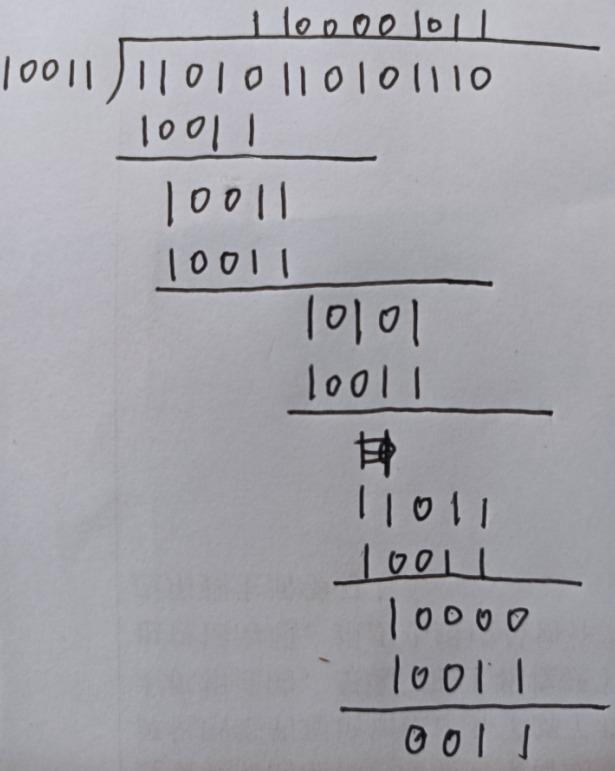 1100001011
10011 ) 11010110101110
10011
10011
10011
10101
10011
11011
10011
10000
10011
0011